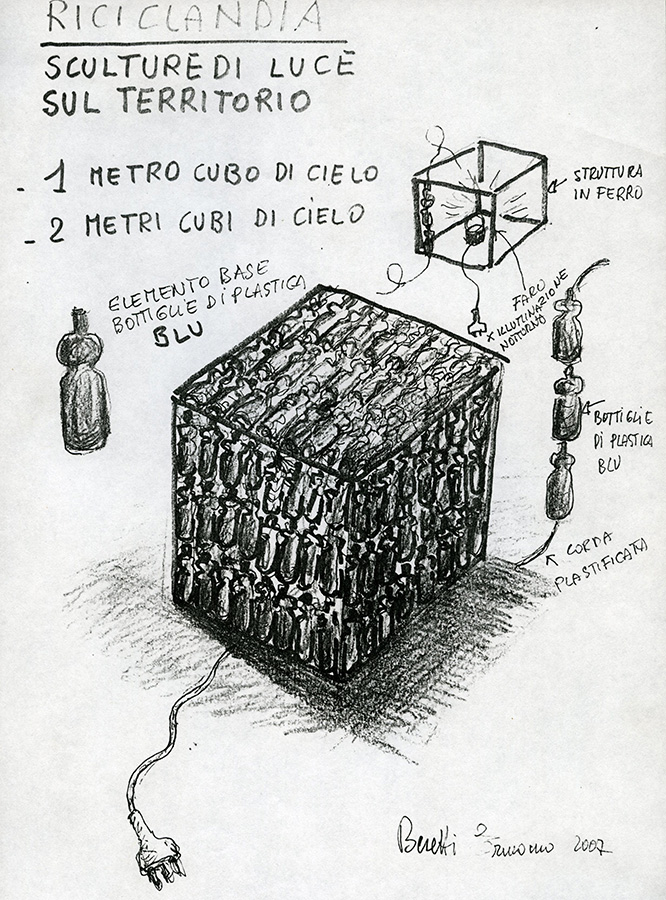 RICICLANDIA
SCULTURE DI LUCE
SUL TERRITORIO
- 1 METRO CUBO DI CIELO
- 2 METRI CUBI DI CIELO
STRUTTURA
IN FERRO
ELEMENTO BASE
BOTTIGLIE DI PLASTICA
BLU
FARO
X ILLUMINAZIONE
NOTTURNO
BOTTIGLIE
DI PLASTICA
BLU
CORDA
PLASTIFICATA
2007